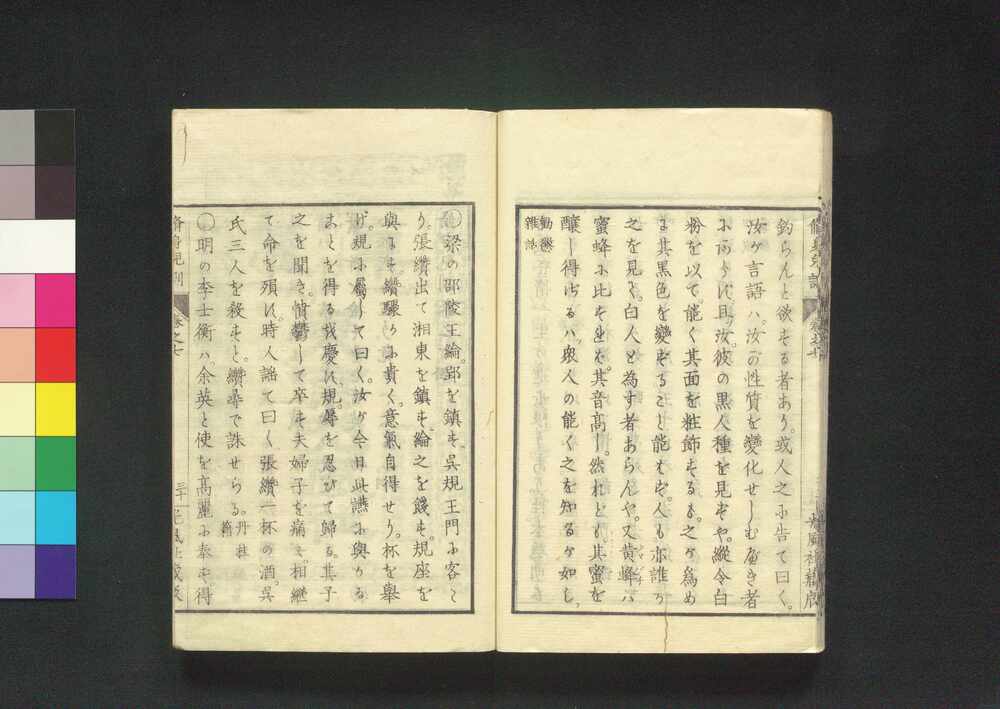 釣らんと欲もる者あり。或人之小告て曰く。
汝ケ言語ハ。汝の性質を變化せしむ可き者
小あらに。且汝。彼の黒人種を見ぞや。縱令白
粉を以て。能く其面を粧飾もるも。之ケ為め
に其黒色を變ぞること能もぞ。人も亦誰か
之を見て。白人と為す者あらんや。又黄蜂ハ
蜜蜂小比もれを。其音高し。然れとも。其蜜を
釀し得ざるハ。衆人の能く之を知るケ如し。
勸懲
雜話
○梁の邵陵王綸。郢を鎮も。呉規王門小客た
り。張纘出て湘東を鎮も。綸之を餞も。規座を
與にも。纘驕り小貴く。意氣自得せり。杯を舉
げ。規小屬して曰く。汝ケ今日此讌小與かる
ことを得るを慶に。規辱を忍びて歸る。其子
之を聞き。憤鬱して卒も。夫婦子を痛み。相繼
て命を殞に。時人謡て曰く。張纘一杯の酒。呉
氏三人を殺もと。纘尋で誅せらる。
丹桂
籍
○明の李士衡ハ。余英と使を高麗小奉も。得
卷之七